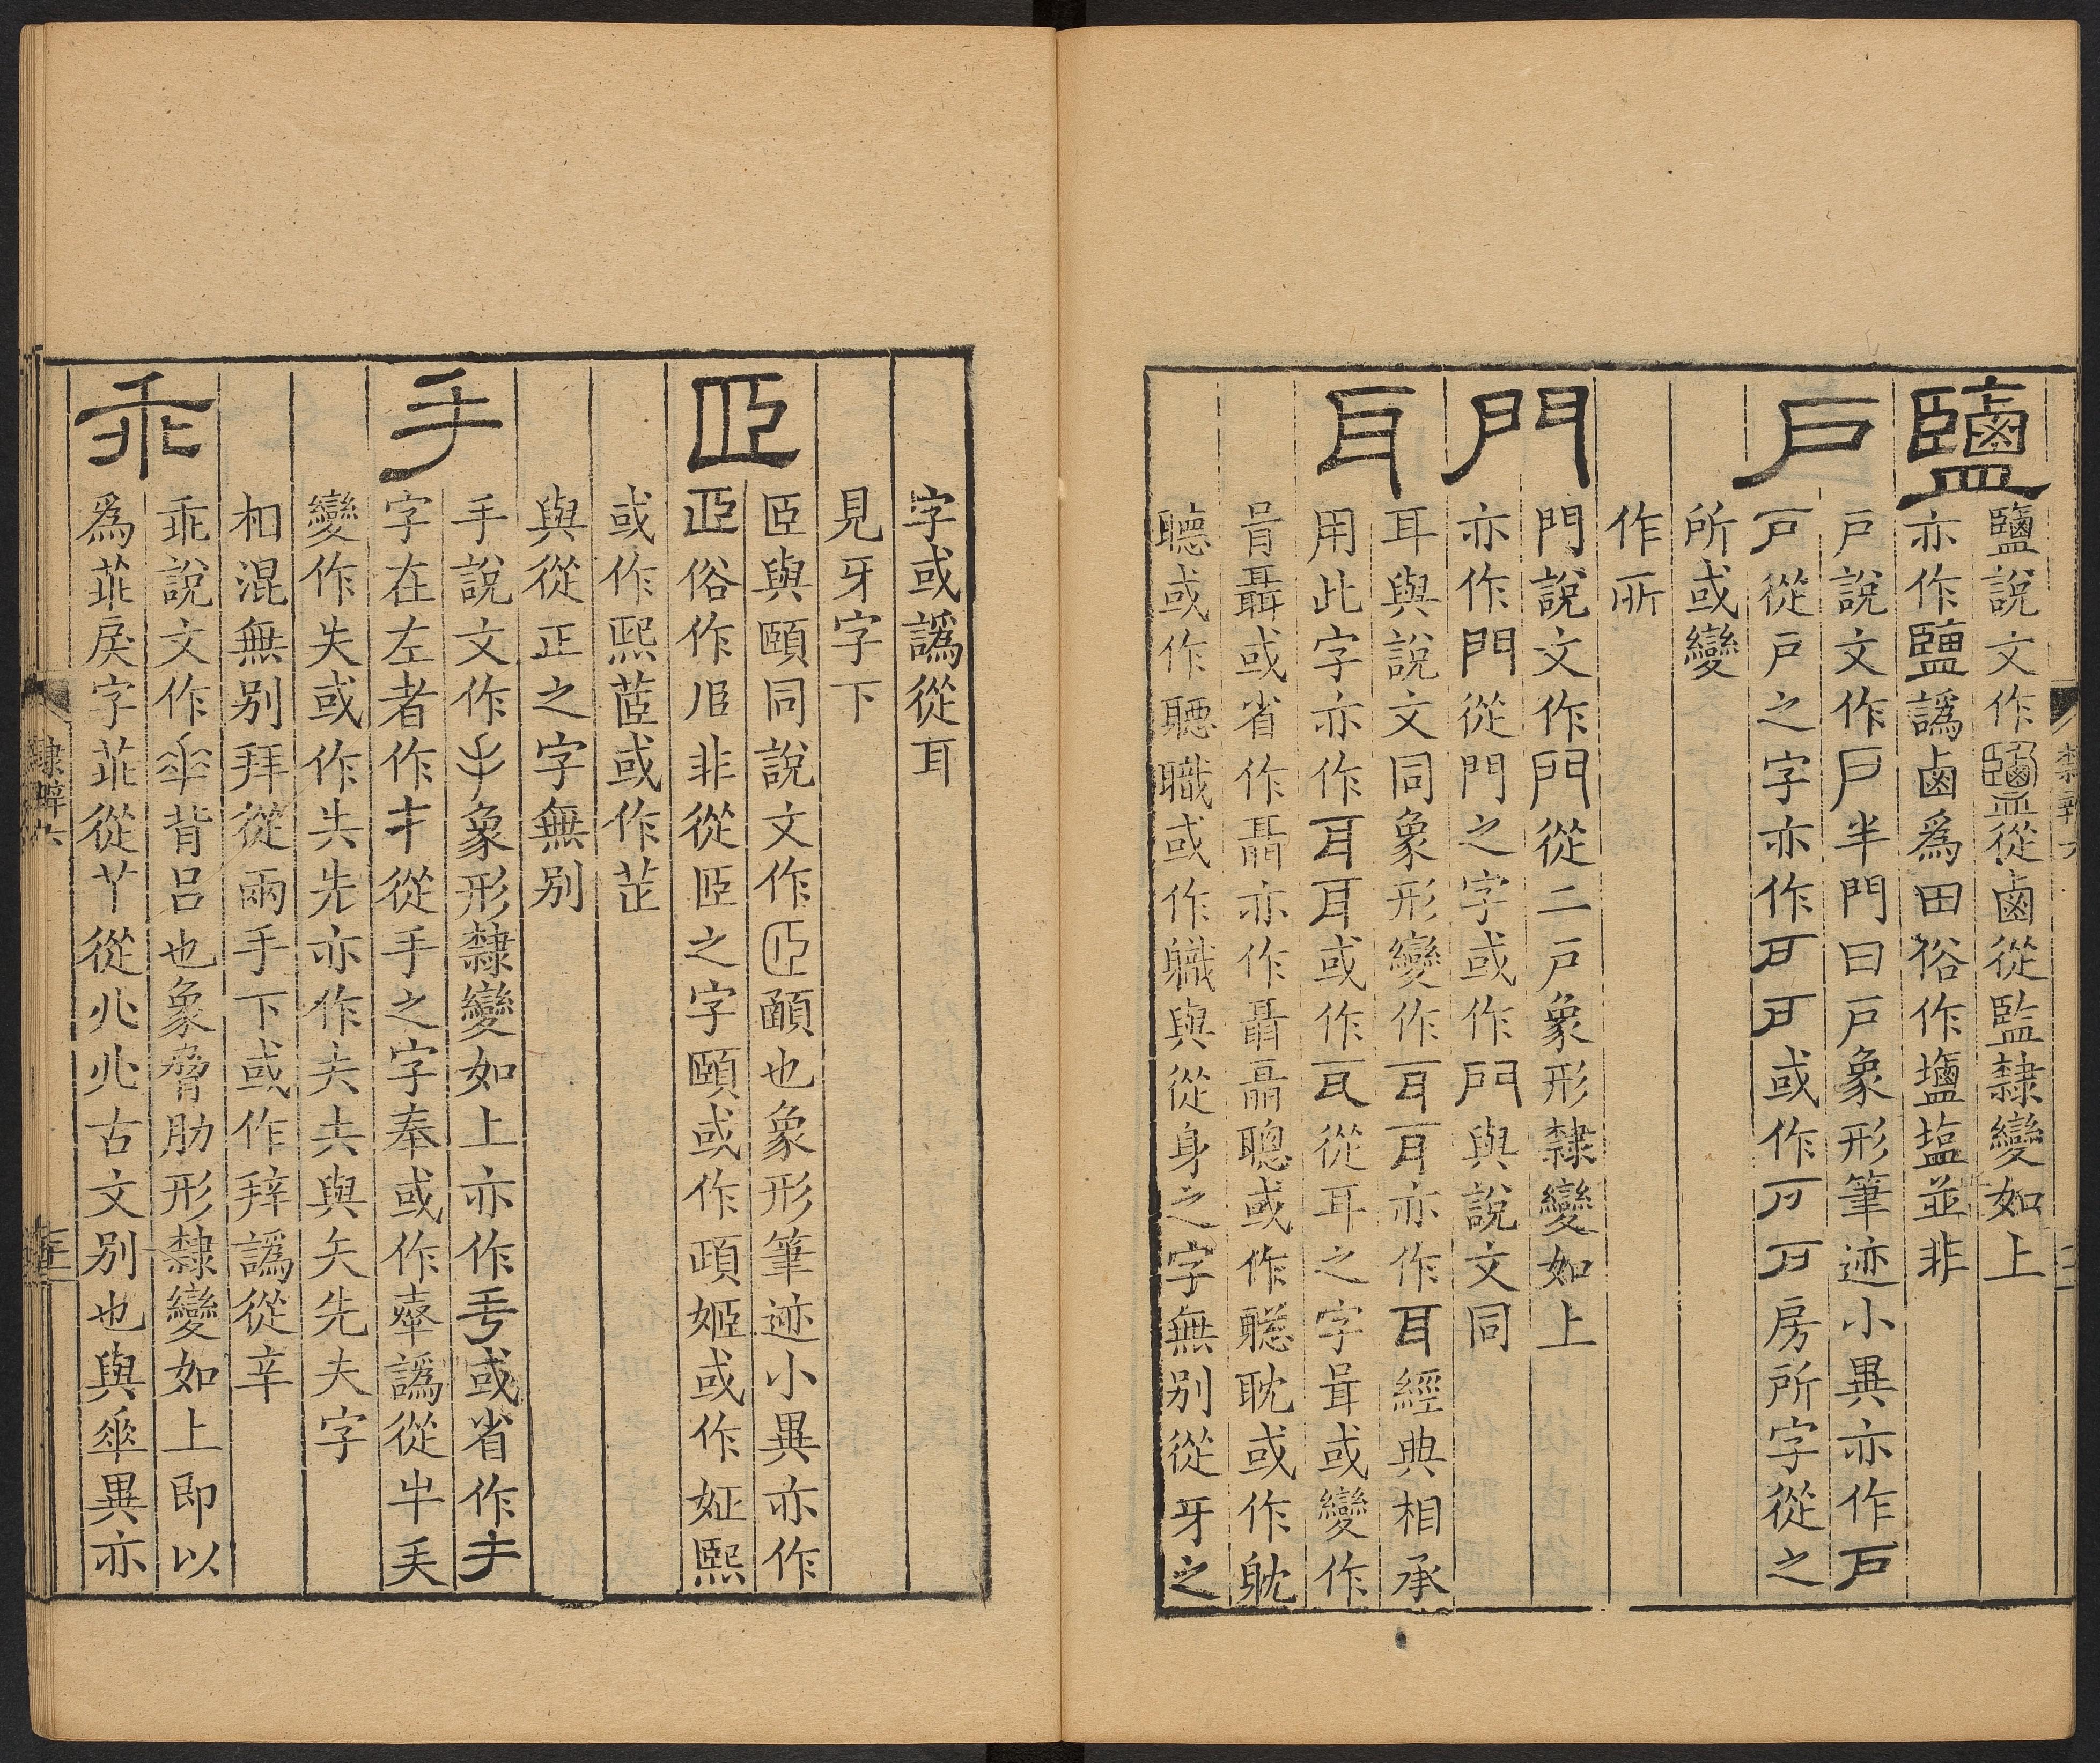 鹽
鹽說文作鹽從鹵從監隸變如上
亦作鹽譌鹵爲田俗作壚塩並非
戶
戶說文作戶半門曰戶象形筆迹小異亦作戶
戶從戶之字亦作或作房所字從之
所或變
作所
門
門說文作門從二戶象形隸變如上
亦作門從門之字或作門與說文同
耳
耳與說文同象形變作耳耳亦作耳經典相承
用此字亦作耳耳或作從耳之字咠或變作
咠聶或省作聶亦作聶聶聰或作聦耽或作躭
聽或作聽職或作軄與從身之字無別從牙之
字或譌從耳
見牙字下
𦣞
𦣞與頤同說文作𦣞顄也象形筆迹小異亦作
俗作非從𦣞之字頤或作姬或作姃熙
或作熙茝或作芷
與從正之字無別
手
手說文作手象形隸變如上亦作或省作
字在左者作扌從手之字奉或作譌從牛
變作失或作失先亦作夫與矢先夫字
相混無別拜從兩手下或作拜譌從辛
乖
乖說文作背呂也象脅肋形隸變如上即以
爲乖戾字從丫從𠔁𠔁古文別也與異亦
隸辨六